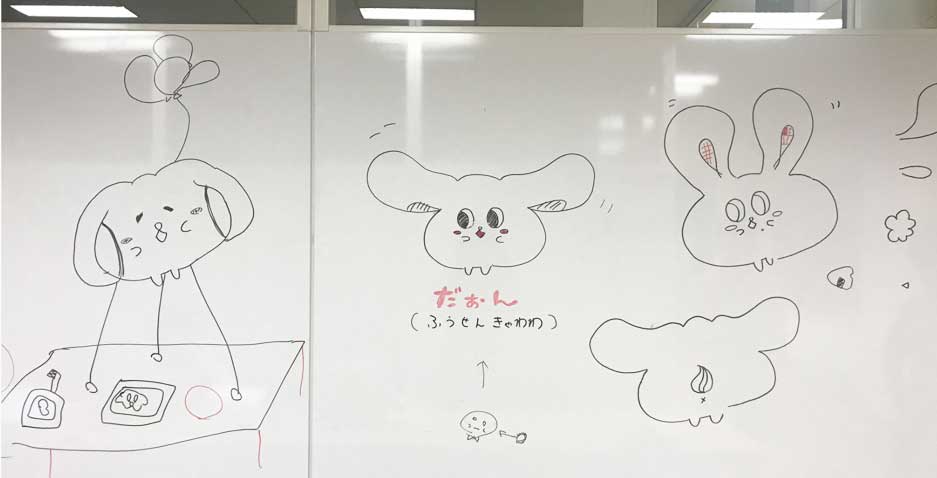 だぉん
(ふうせんきゃわわ)